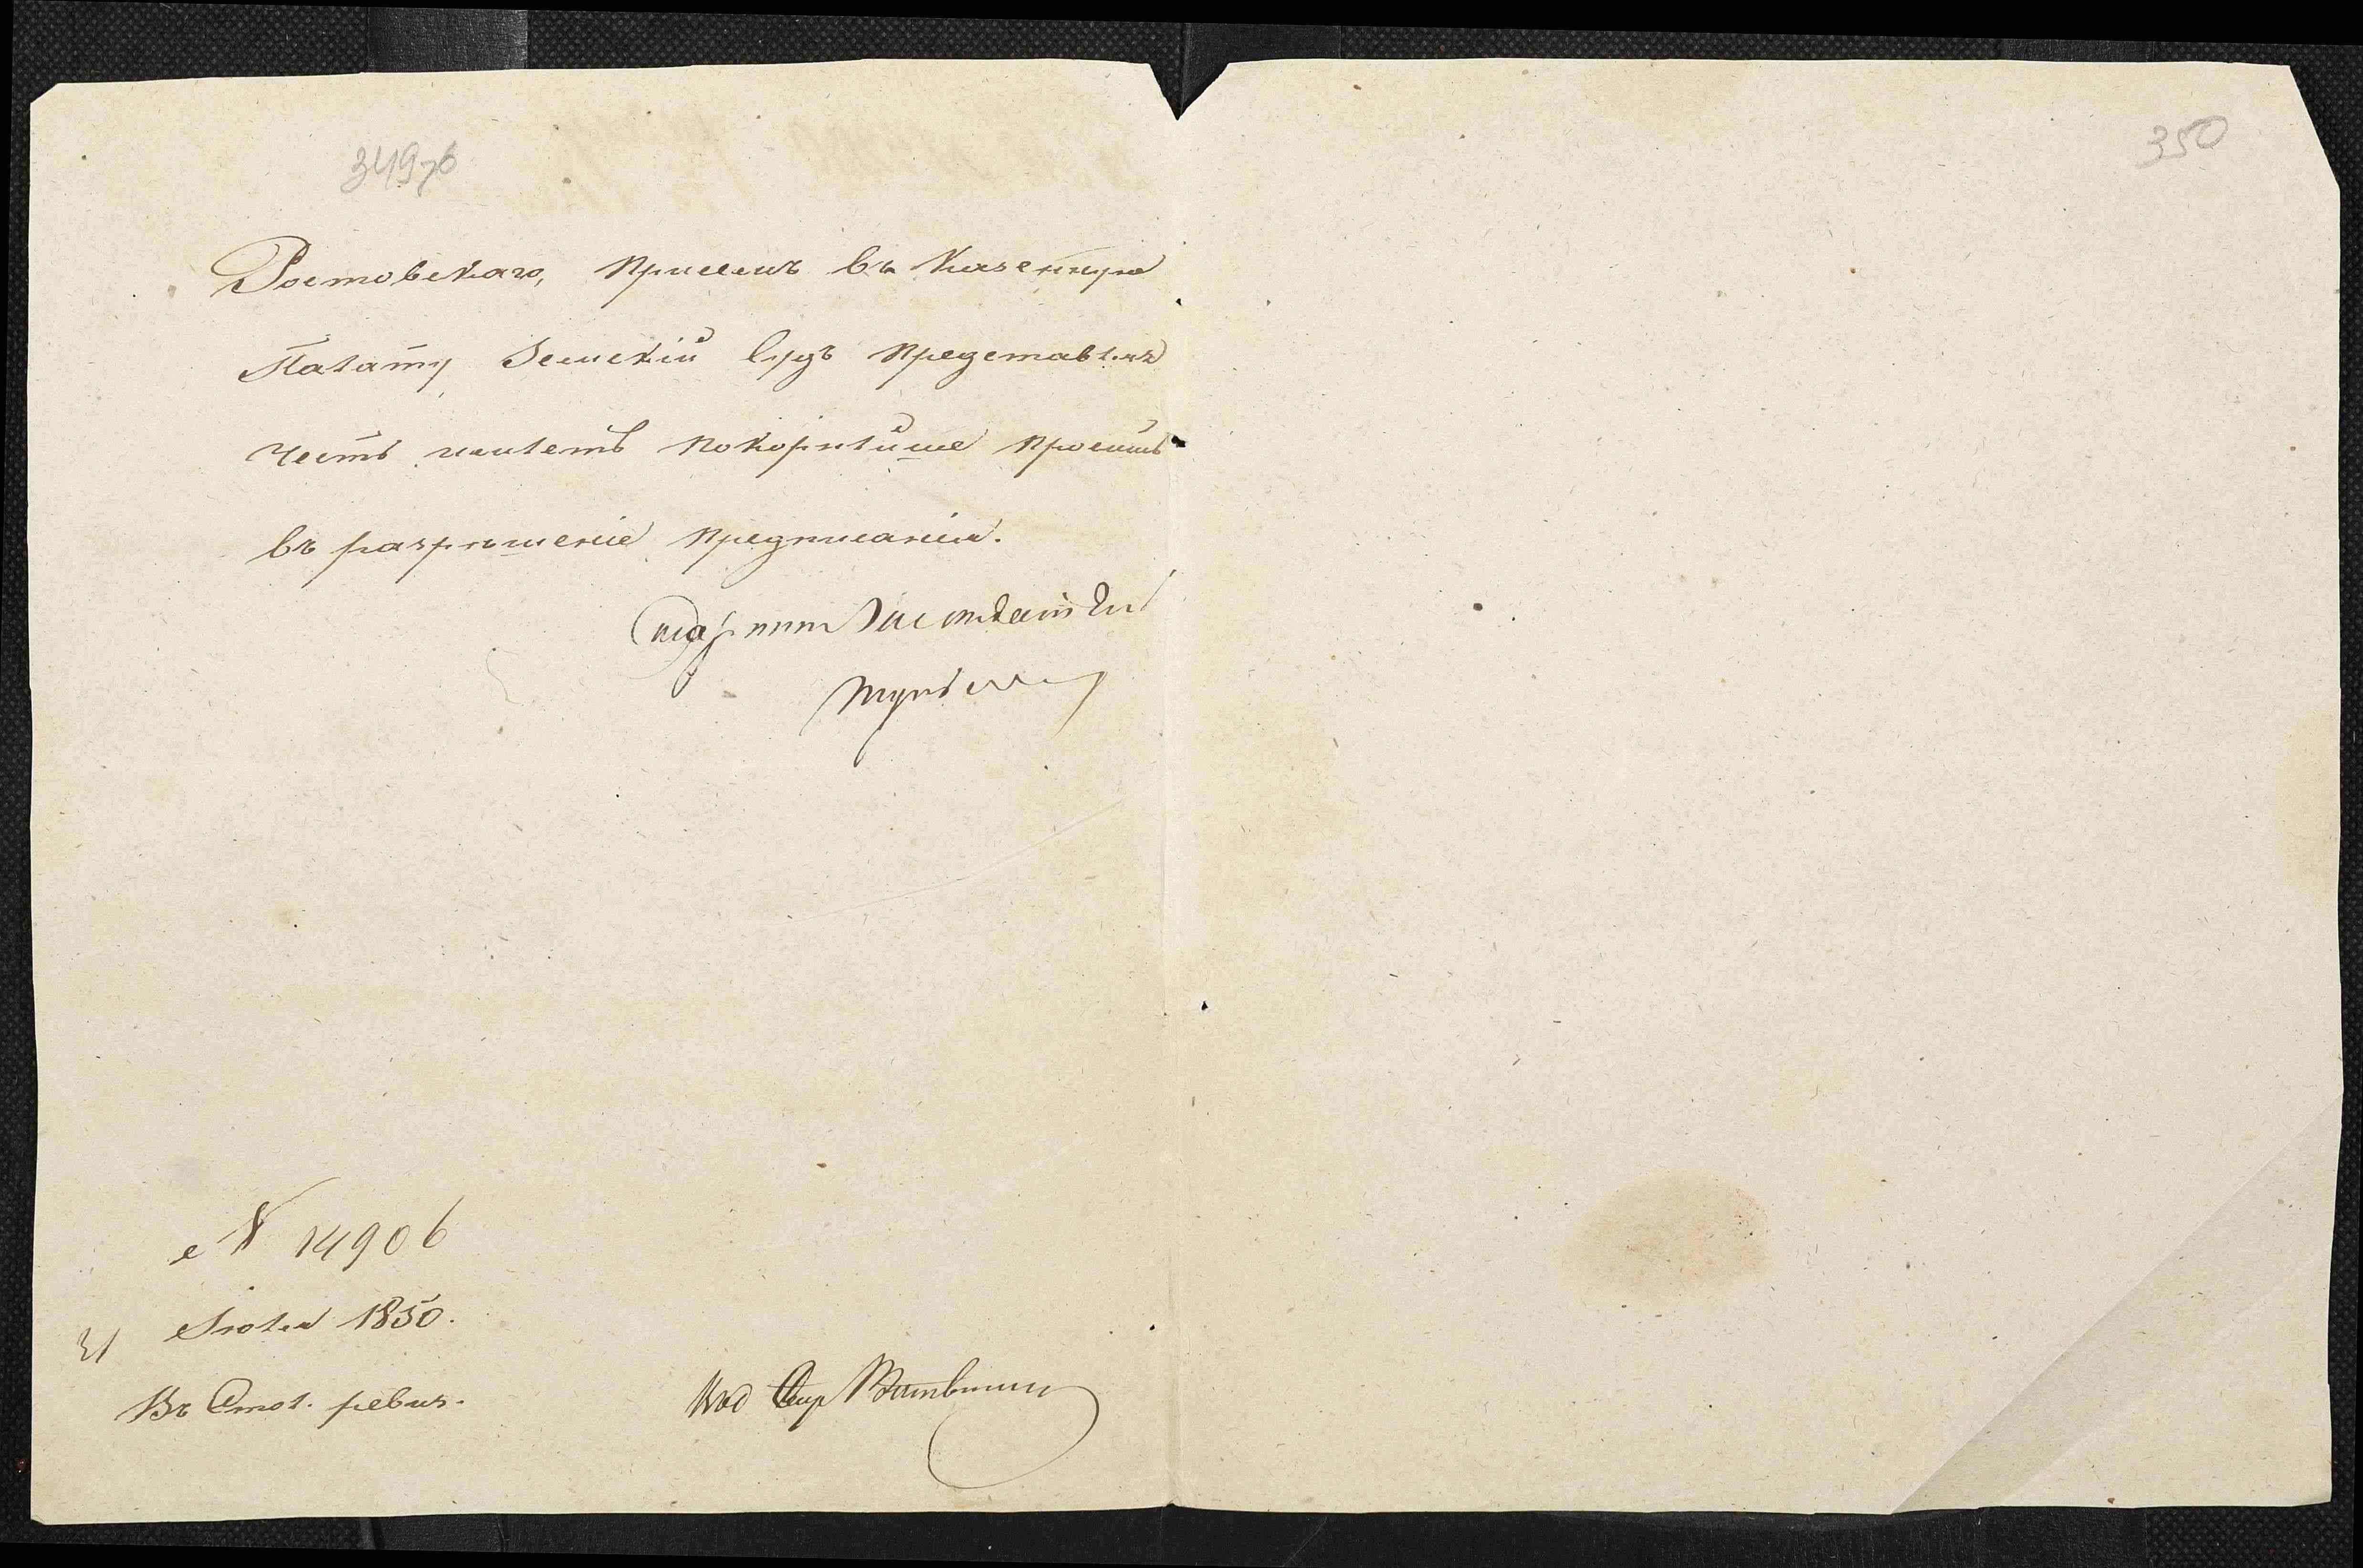 349об
350
Ростовскаго, при семъ въ Казенную
Палату Земскій Судъ представляя
честь имѣетъ покорнѣйше просить
въ разрѣшеніе предписанія.
Старшій Засѣдатель
№ 14906
31 Іюля 1850.
Въ Стол. ревиз.